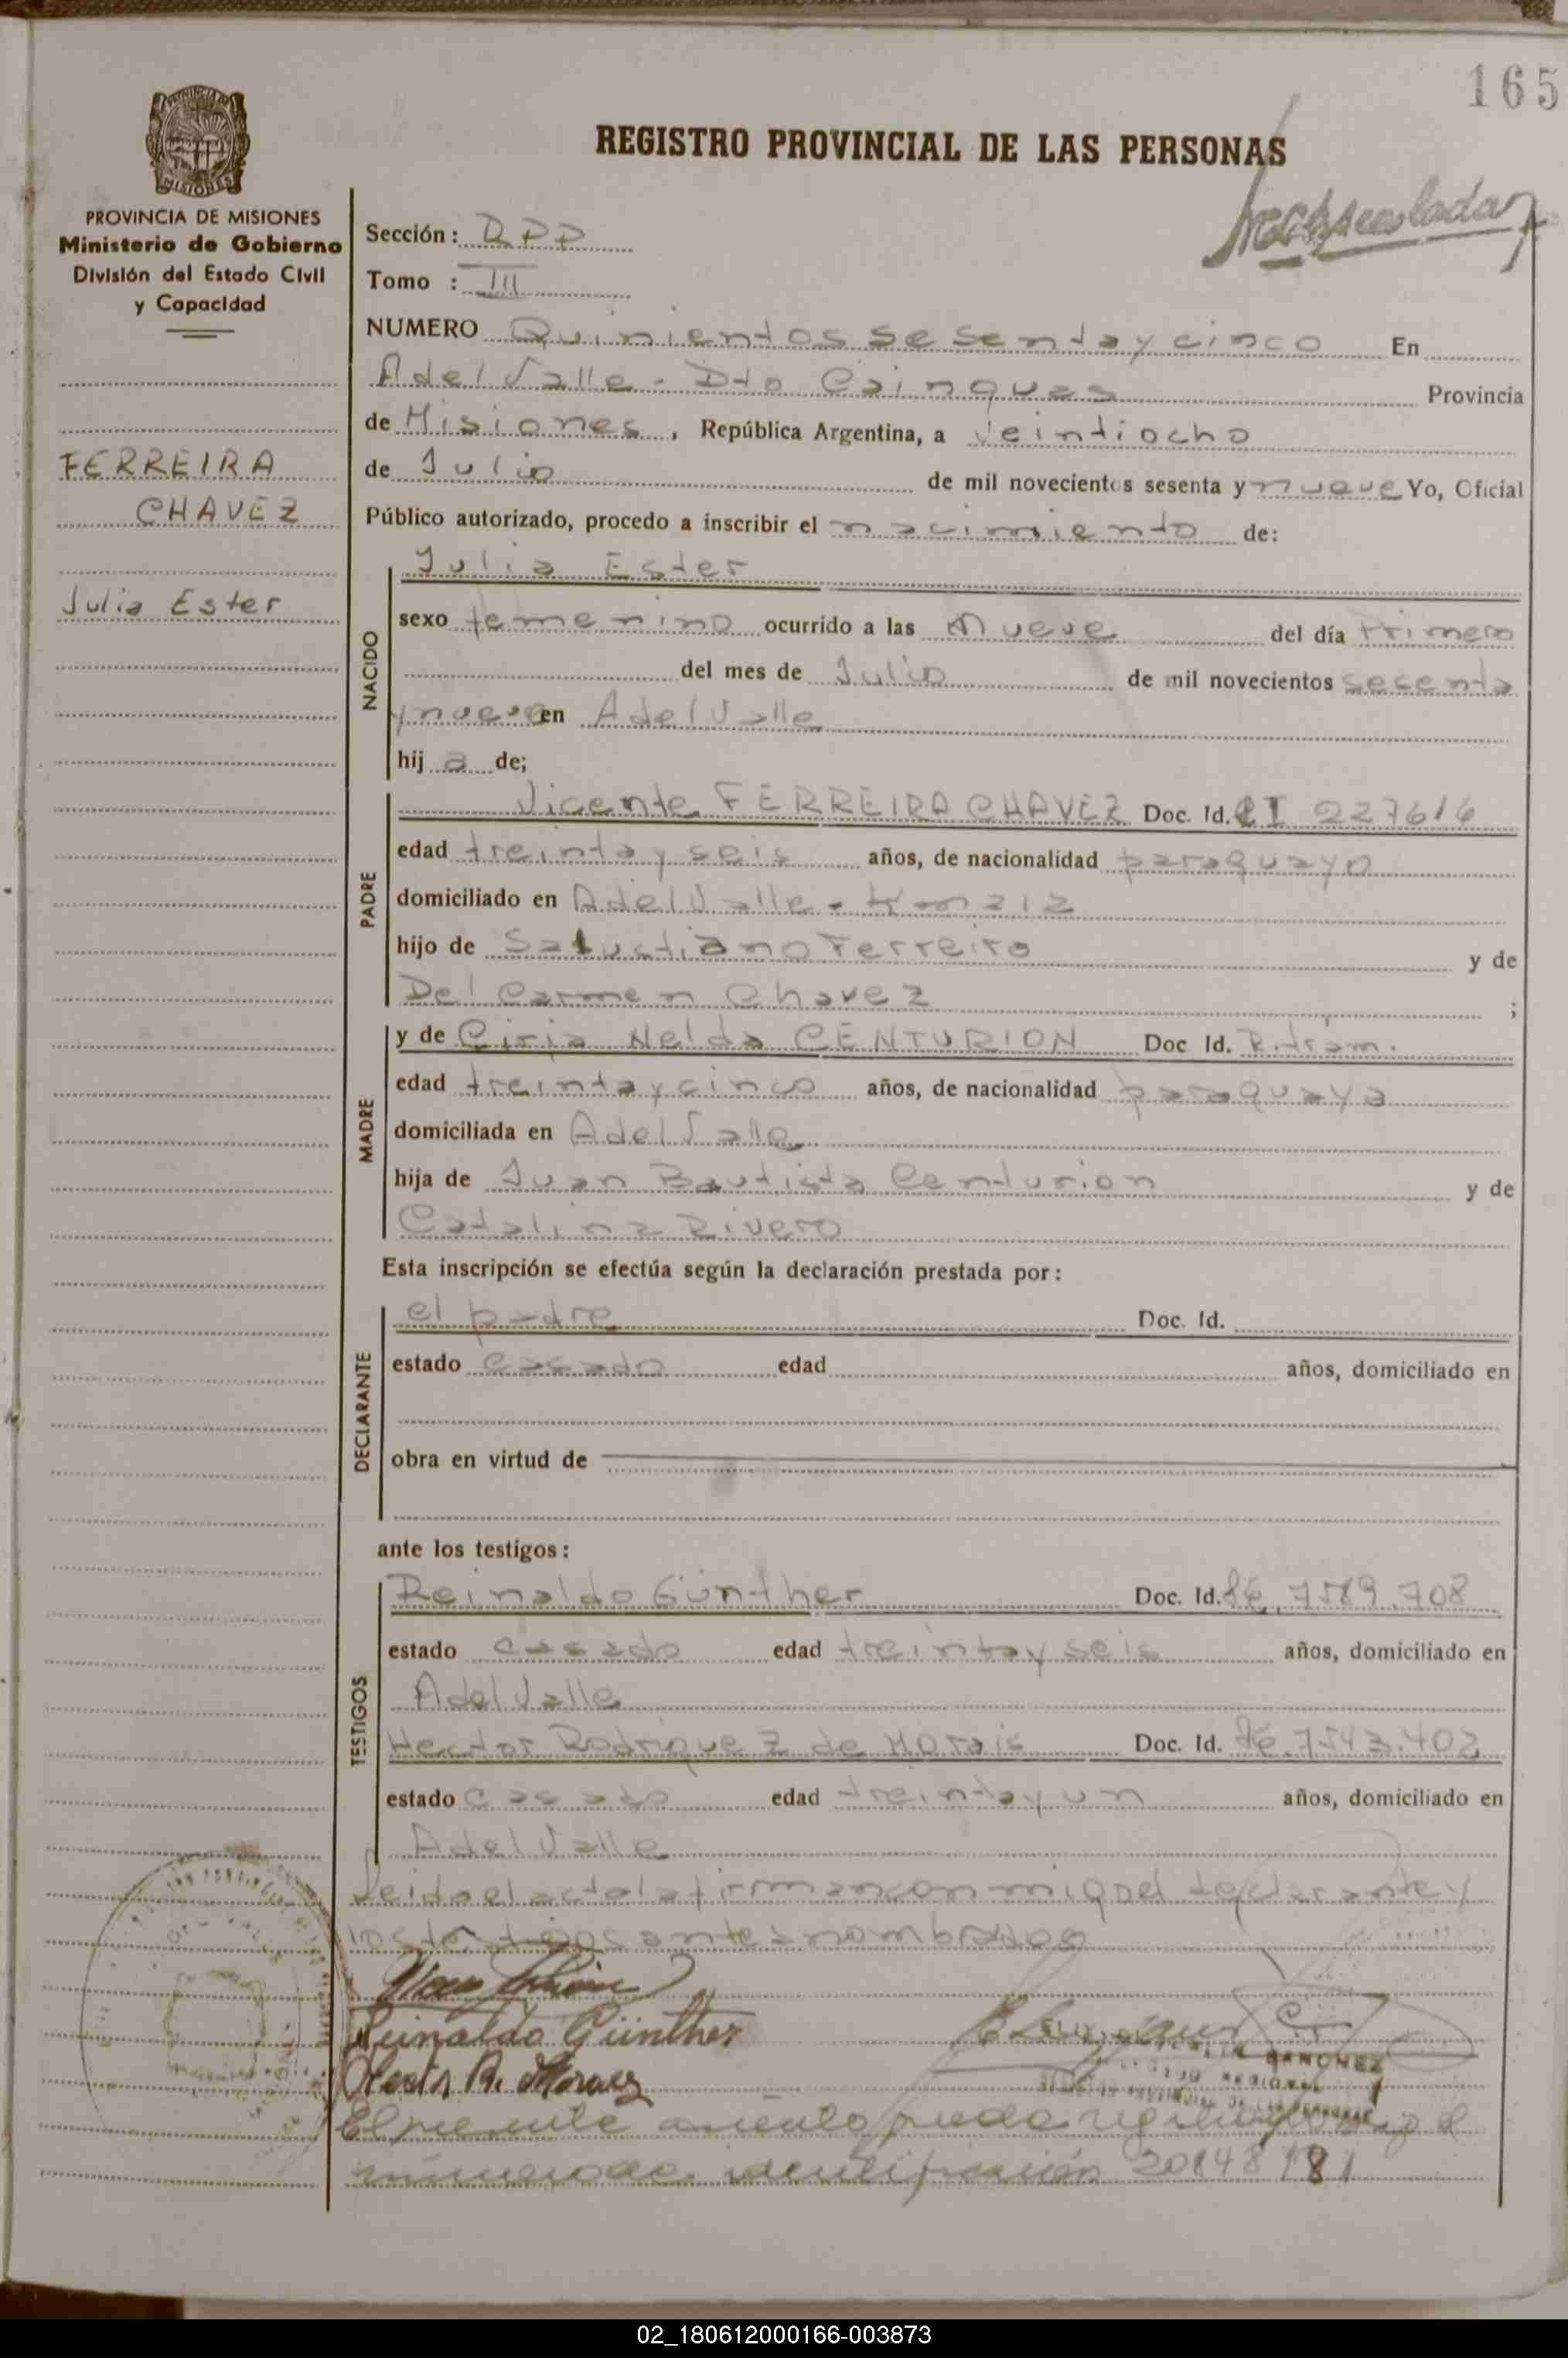 165
REGISTRO PROVINCIAL DE LAS PERSONAS
PROVINCIA DE MISIONES
MISIONES
PROVINCIA DE MISIONES
Ministerio de Gobierno
División del Estado Civil
y Capacidad
Sección: DPP
Tomo : III
NUMERO Quinientos sesenta y cinco En
Adel Valle - Dto Cainguas Provincia
de Misiones, República Argentina, a veintiocho
de Julio de mil novecientos sesenta y nueve Yo, Oficial
Público autorizado, procedo a inscribir el nacimiento de:
FERREIRA
CHAVEZ
Julia Ester
NACIDO
Julia Ester
sexo femenino ocurrido a las nueve del día Primero
del mes de Julio de mil novecientos sesenta
y nueve en Adel Valle
hij a de;
PADRE
Vicente FERREIRA CHAVEZ Doc. Id. CI 227616
edad treinta y seis años, de nacionalidad paraguayo
domiciliado en Adel Valle - km 212
hijo de Salustiano Ferreiro y de
Del Carmen Chavez ;
MADRE
y de Ciria Nelda CENTURION Doc Id. R. trám.
edad treinta y cinco años, de nacionalidad paraguaya
domiciliada en Adel Valle
hija de Juan Bautista Centurion y de
Catalina Rivero
Esta inscripción se efectúa según la declaración prestada por:
DECLARANTE
el padre Doc. Id.
estado casado edad años, domiciliado en
obra en virtud de
ante los testigos:
TESTIGOS
Reinaldo Günther Doc. Id. 7589.708
estado casado edad treinta y seis años, domiciliado en
Adel Valle
Hector Rodriguez de Morais Doc. Id. 7543.402
estado casado edad treinta y un años, domiciliado en
Adel Valle
Leida el acta la firman conmigo el declarante y
los testigos antes nombrados
Reinaldo Günther
Hector R. Moraes
SANCHEZ
REGIONAL
El presente asiento queda registrado bajo el
número de identificación 20148181
02_180612000166-003873